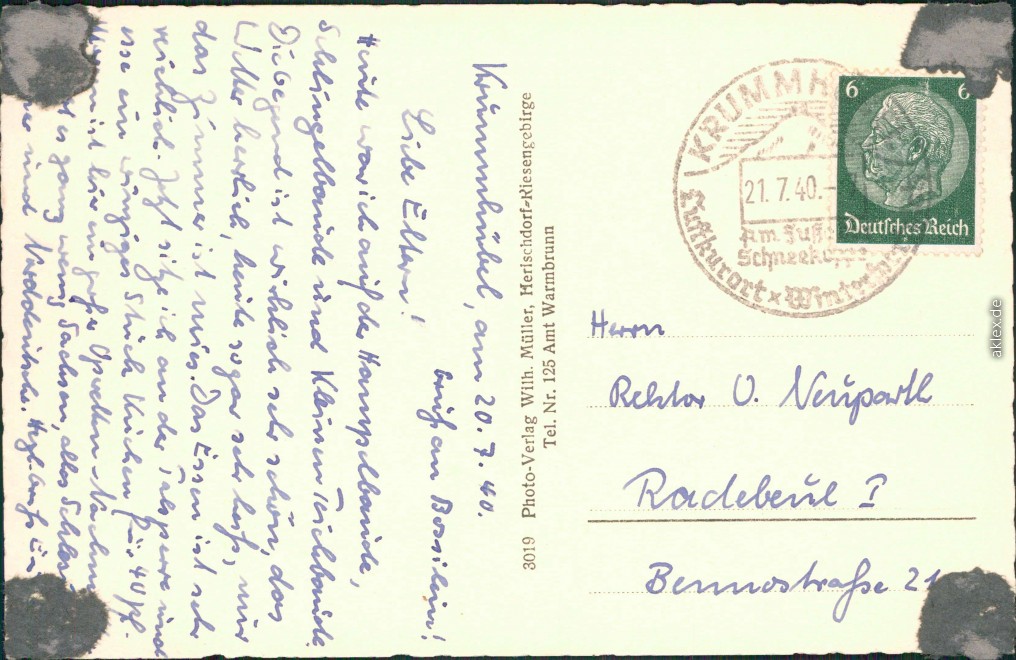 Krummhübel, am 20.7.40.
Liebe Eltern!
Heute war ich auf der Hampelbaude,
Schlingelbaude und Kleinen Teichbaude.
Die Gegend ist wirklich sehr schön, das
Wetter herrlich, heute sogar sehr heiß, nur
das Zimmer ist mies. Das Essen ist sehr
reichlich. Jetzt sitze ich an der Talsperre und
esse ein winziges Stück Kuchen für 40 Pf.
ist hier ein großer
ganz wenig Sachsen, alles
und Norddeutsche. Herzl.
3019 Photo-Verlag Wilh. Müller, Herischdorf-Riesengebirge
Tel. Nr. 125 Amt Warmbrunn
KRUMMH
21.7.40.-
Am Fuß
Schneekoppe
Luftkurort x Wintersport
6 6
Deutsches Reich
Herrn
Rektor O. Neuparth
Radebeul I
Bennostraße 21
aklex.de